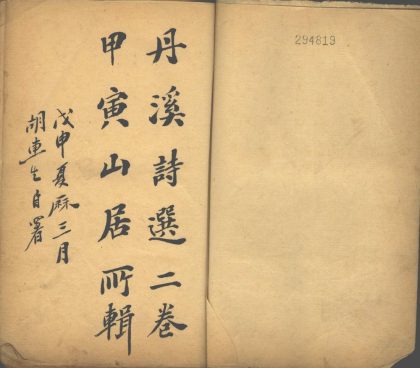 丹溪詩選二卷
甲寅山居所輯
戊申夏厤三月
胡東生自署
294819